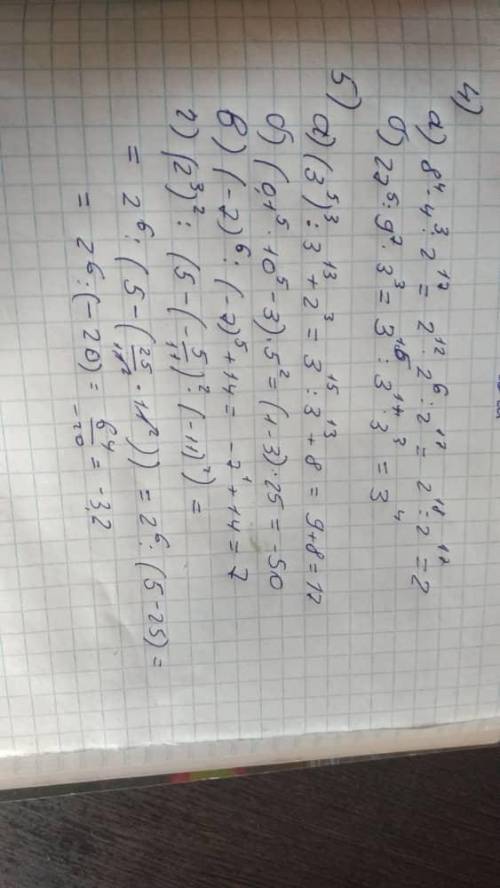 4)
а) 8⁴·4³:2¹⁷ = 2¹²·2⁶:2¹⁷ = 2¹⁸:2¹⁷ = 2
б) 27⁵:9⁷·3³ = 3¹⁵:3¹⁴·3³ = 3⁴
5)
а) (3⁵)³:3¹³+2³ = 3¹⁵:3¹³+8 = 9+8 = 17
б) (0,1⁵·10⁵-3)·5² = (1-3)·25 = -50
в) (-7)⁶:(-7)⁵+14 = -7¹+14 = 7
г) (2³)²:(5-(-5/11)²·(-11)²) =
= 2⁶:(5-(25/11²·11²)) = 2⁶:(5-25) =
= 2⁶:(-20) = 64/-20 = -3,2